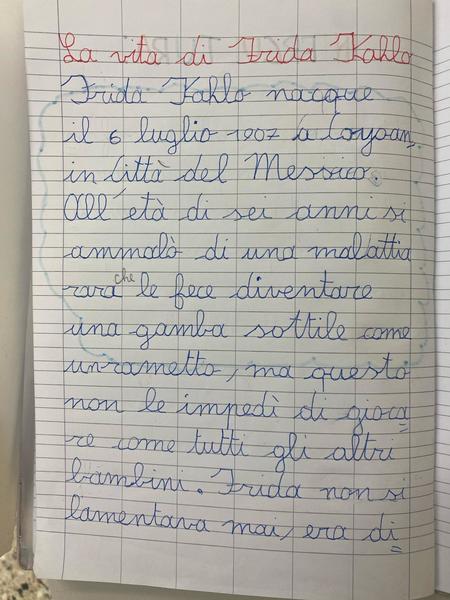 La vita di Frida Kahlo
Frida Kahlo nacque
il 6 luglio 1907 a Coyoan,
in Città del Messico.
All'età di sei anni si
ammalò di una malattia
rara che le fece diventare
una gamba sottile come
un rametto, ma questo
non le impedì di gioca
re come tutti gli altri
bambini. Frida non si
lamentava mai, era di